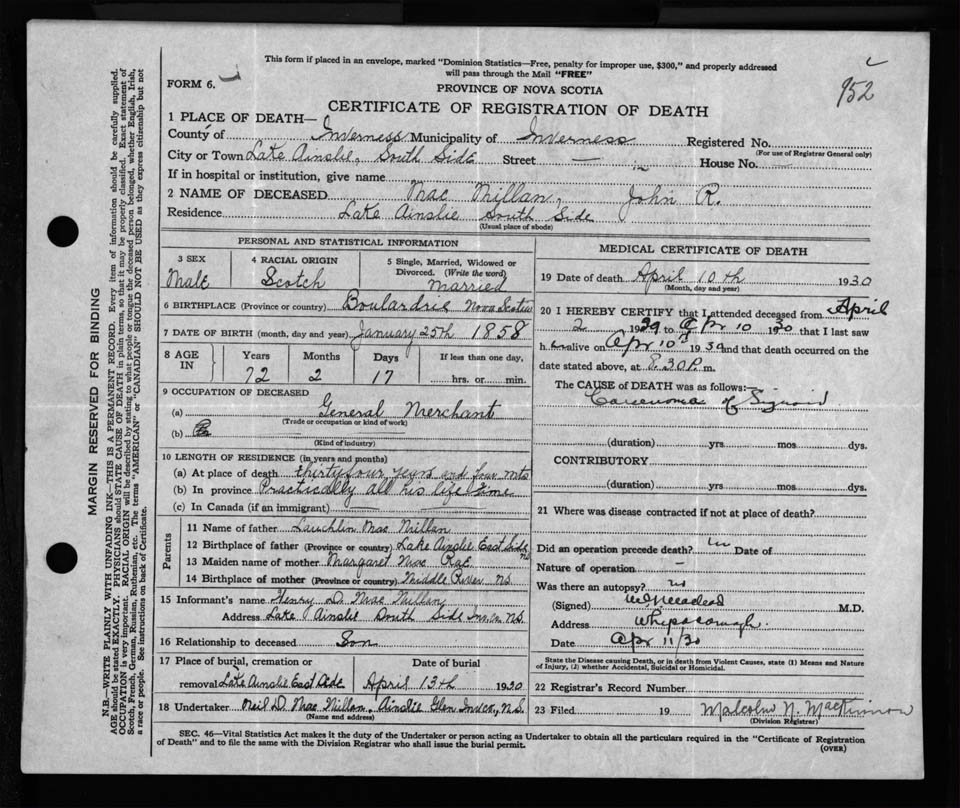 This form if placed in an envelope, marked "Dominion Statistics—Free, penalty for improper use, $300," and properly addressed
will pass through the Mail "FREE"
FORM 6.
PROVINCE OF NOVA SCOTIA
952
CERTIFICATE OF REGISTRATION OF DEATH
1 PLACE OF DEATH—
County of Inverness Municipality of Inverness Registered No.
(For use of Registrar General only)
City or Town Lake Ainslie, South Side Street — House No. —
If in hospital or institution, give name
2 NAME OF DECEASED Mac Millan, John R.
Residence Lake Ainslie South Side
(Usual place of abode)
PERSONAL AND STATISTICAL INFORMATION
3 SEX
Male
4 RACIAL ORIGIN
Scotch
5 Single, Married, Widowed or
Divorced. (Write the word)
Married
6 BIRTHPLACE (Province or country) Boulardrie Nova Scotia
7 DATE OF BIRTH (month, day and year) January 25th 1858
8 AGE IN
Years Months Days If less than one day,
72 2 17 hrs. or min.
9 OCCUPATION OF DECEASED
(a) General Merchant
(Trade or occupation or kind of work)
(b)
(Kind of industry)
10 LENGTH OF RESIDENCE (in years and months)
(a) At place of death thirtyfour years and four mts
(b) In province Practically all his life time
(c) In Canada (if an immigrant)
Parents
11 Name of father Lauchlin Mac Millan
12 Birthplace of father (Province or country) Lake Ainslie East Side NS
13 Maiden name of mother Margaret Mac Rae
14 Birthplace of mother (Province or country) Middle River NS
15 Informant's name Henry D. Mac Millan
Address Lake Ainslie South Side Inv. Co. N.S.
16 Relationship to deceased Son
17 Place of burial, cremation or
removal Lake Ainslie East Side
Date of burial
April 13th 1930
18 Undertaker Neil D. Mac Millan, Ainslie Glen Inv. Co., N.S.
(Name and address)
MEDICAL CERTIFICATE OF DEATH
19 Date of death April 10th 1930
(Month, day and year)
20 I HEREBY CERTIFY that I attended deceased from April
2 1929 to Apr 10 1930 that I last saw
h alive on Apr 10th 1930 and that death occurred on the
date stated above, at 8.30 P. m.
The CAUSE of DEATH was as follows:—
Carcenoma of Sigmoid
(duration) yrs. mos. dys.
CONTRIBUTORY
(duration) yrs. mos. dys.
21 Where was disease contracted if not at place of death?
Did an operation precede death? Date of
Nature of operation —
Was there an autopsy? no
(Signed) M.D.
Address Whycocomagh.
Date Apr 11/30
State the Disease causing Death, or in death from Violent Causes, state (1) Means and Nature
of Injury, (2) whether Accidental, Suicidal or Homicidal.
22 Registrar's Record Number
23 Filed 19 Malcolm N. MacKinnon
(Division Registrar)
SEC. 46—Vital Statistics Act makes it the duty of the Undertaker or person acting as Undertaker to obtain all the particulars required in the "Certificate of Registration
of Death" and to file the same with the Division Registrar who shall issue the burial permit.
(OVER)
MARGIN RESERVED FOR BINDING
N.B.—WRITE PLAINLY WITH UNFADING INK—THIS IS A PERMANENT RECORD. Every item of information should be carefully supplied.
AGE should be stated EXACTLY. PHYSICIANS should STATE CAUSE OF DEATH in plain terms, so that it may be properly classified. Exact statement of
OCCUPATION is very important. RACIAL ORIGIN will be described by stating to what people or tongue the deceased person belonged, whether English, Irish,
Scotch, French, German, Russian, Ruthenian, etc. The terms "AMERICAN" or "CANADIAN" SHOULD NOT BE USED as they express citizenship but not
a race or people. See instructions on back of Certificate.